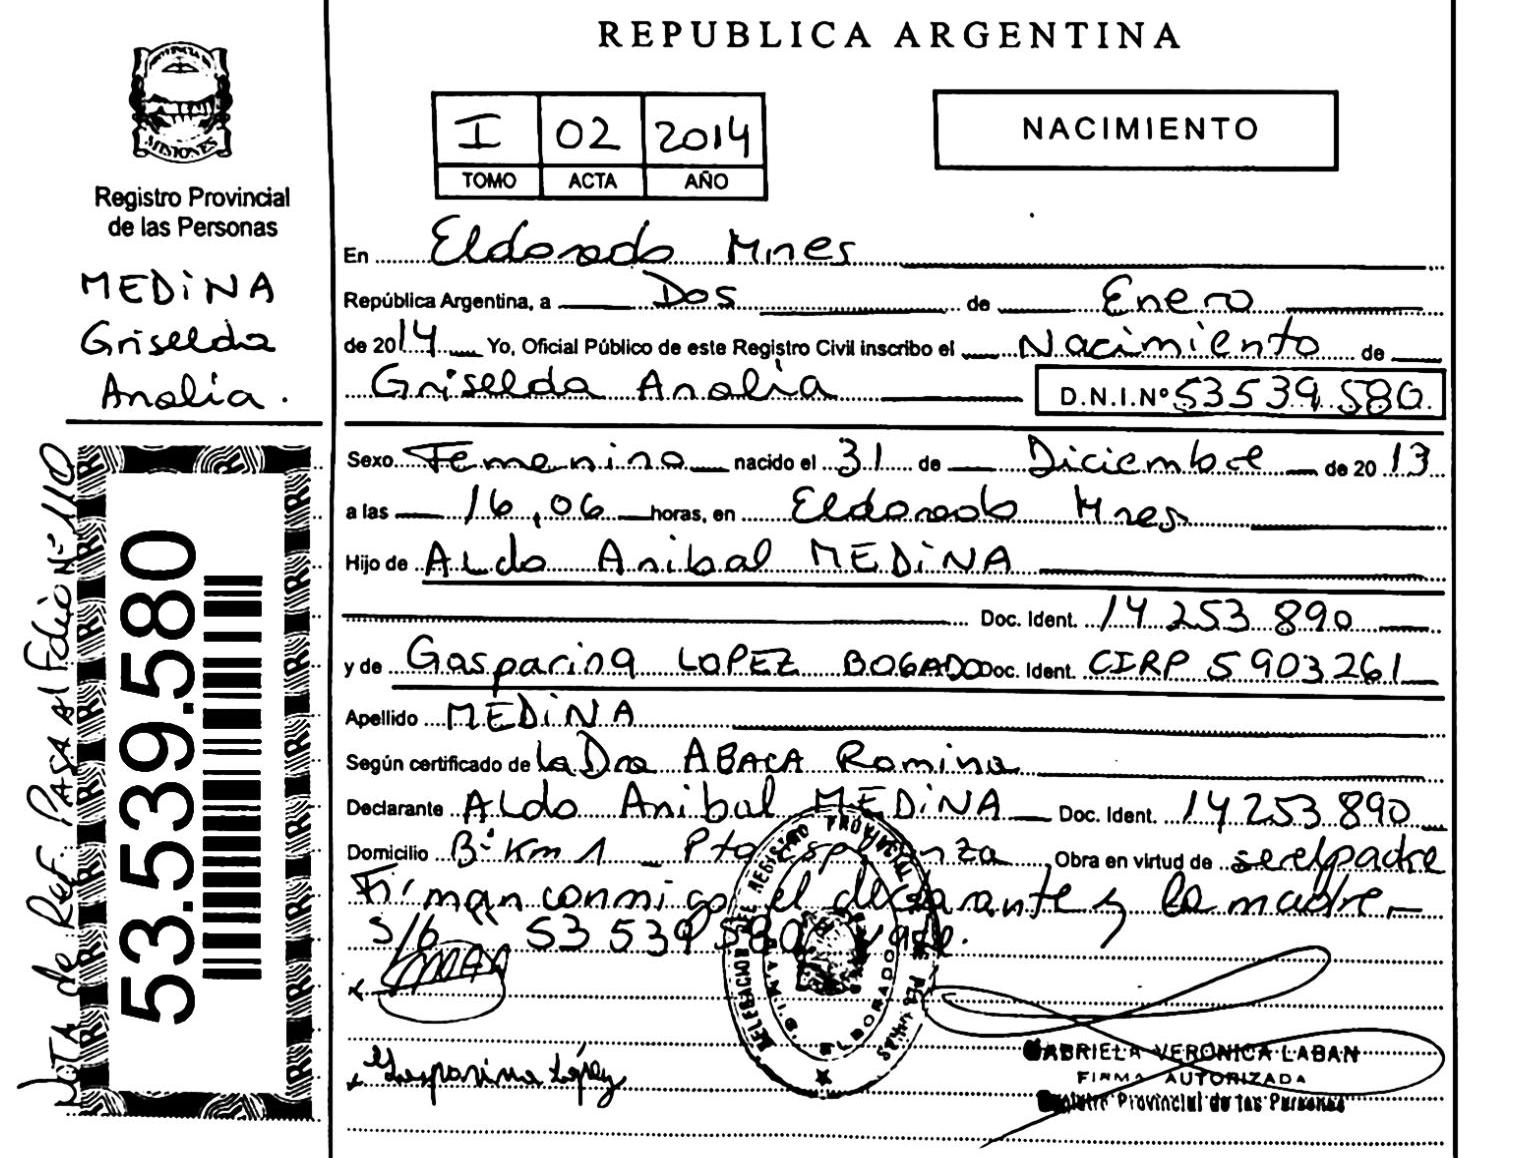 REPUBLICA ARGENTINA
MISIONES
Registro Provincial
de las Personas
MEDiNA
Griselda
Analia.
I 02 2014
TOMO ACTA AÑO
NACIMIENTO
En Eldorado Mnes
República Argentina, a Dos de Enero
de 2014 Yo, Oficial Público de este Registro Civil inscribo el Nacimiento de
Griselda Analia D.N.I.Nº 53539.580.
Sexo Femenino nacido el 31 de Diciembre de 2013
a las 16,06 horas, en Eldorado Mnes
Hijo de ALdo Anibal MEDiNA
Doc. Ident. 14 253 890
y de Gasparina LOPEZ BOGADO Doc. Ident. CIRP 5903261
Apellido MEDiNA
Según certificado de La Dra ABACA Romina
Declarante ALdo Anibal MEDiNA Doc. Ident. 14253.890
Domicilio Bº Km 1 _ Pto Esperanza Obra en virtud de ser el padre
Firman conmigo el declarante y la madre.-
S/b 53 539 580 vale.
x
x Gasparina López
DELEGACION DE REGISTRO PROVINCIAL DE LAS PERSONAS
ELDORADO
GABRIELA VERONICA LABAN
FIRMA AUTORIZADA
Registro Provincial de las Personas
53.539.580
NOTA de Ref. PASA al folio Nº 110